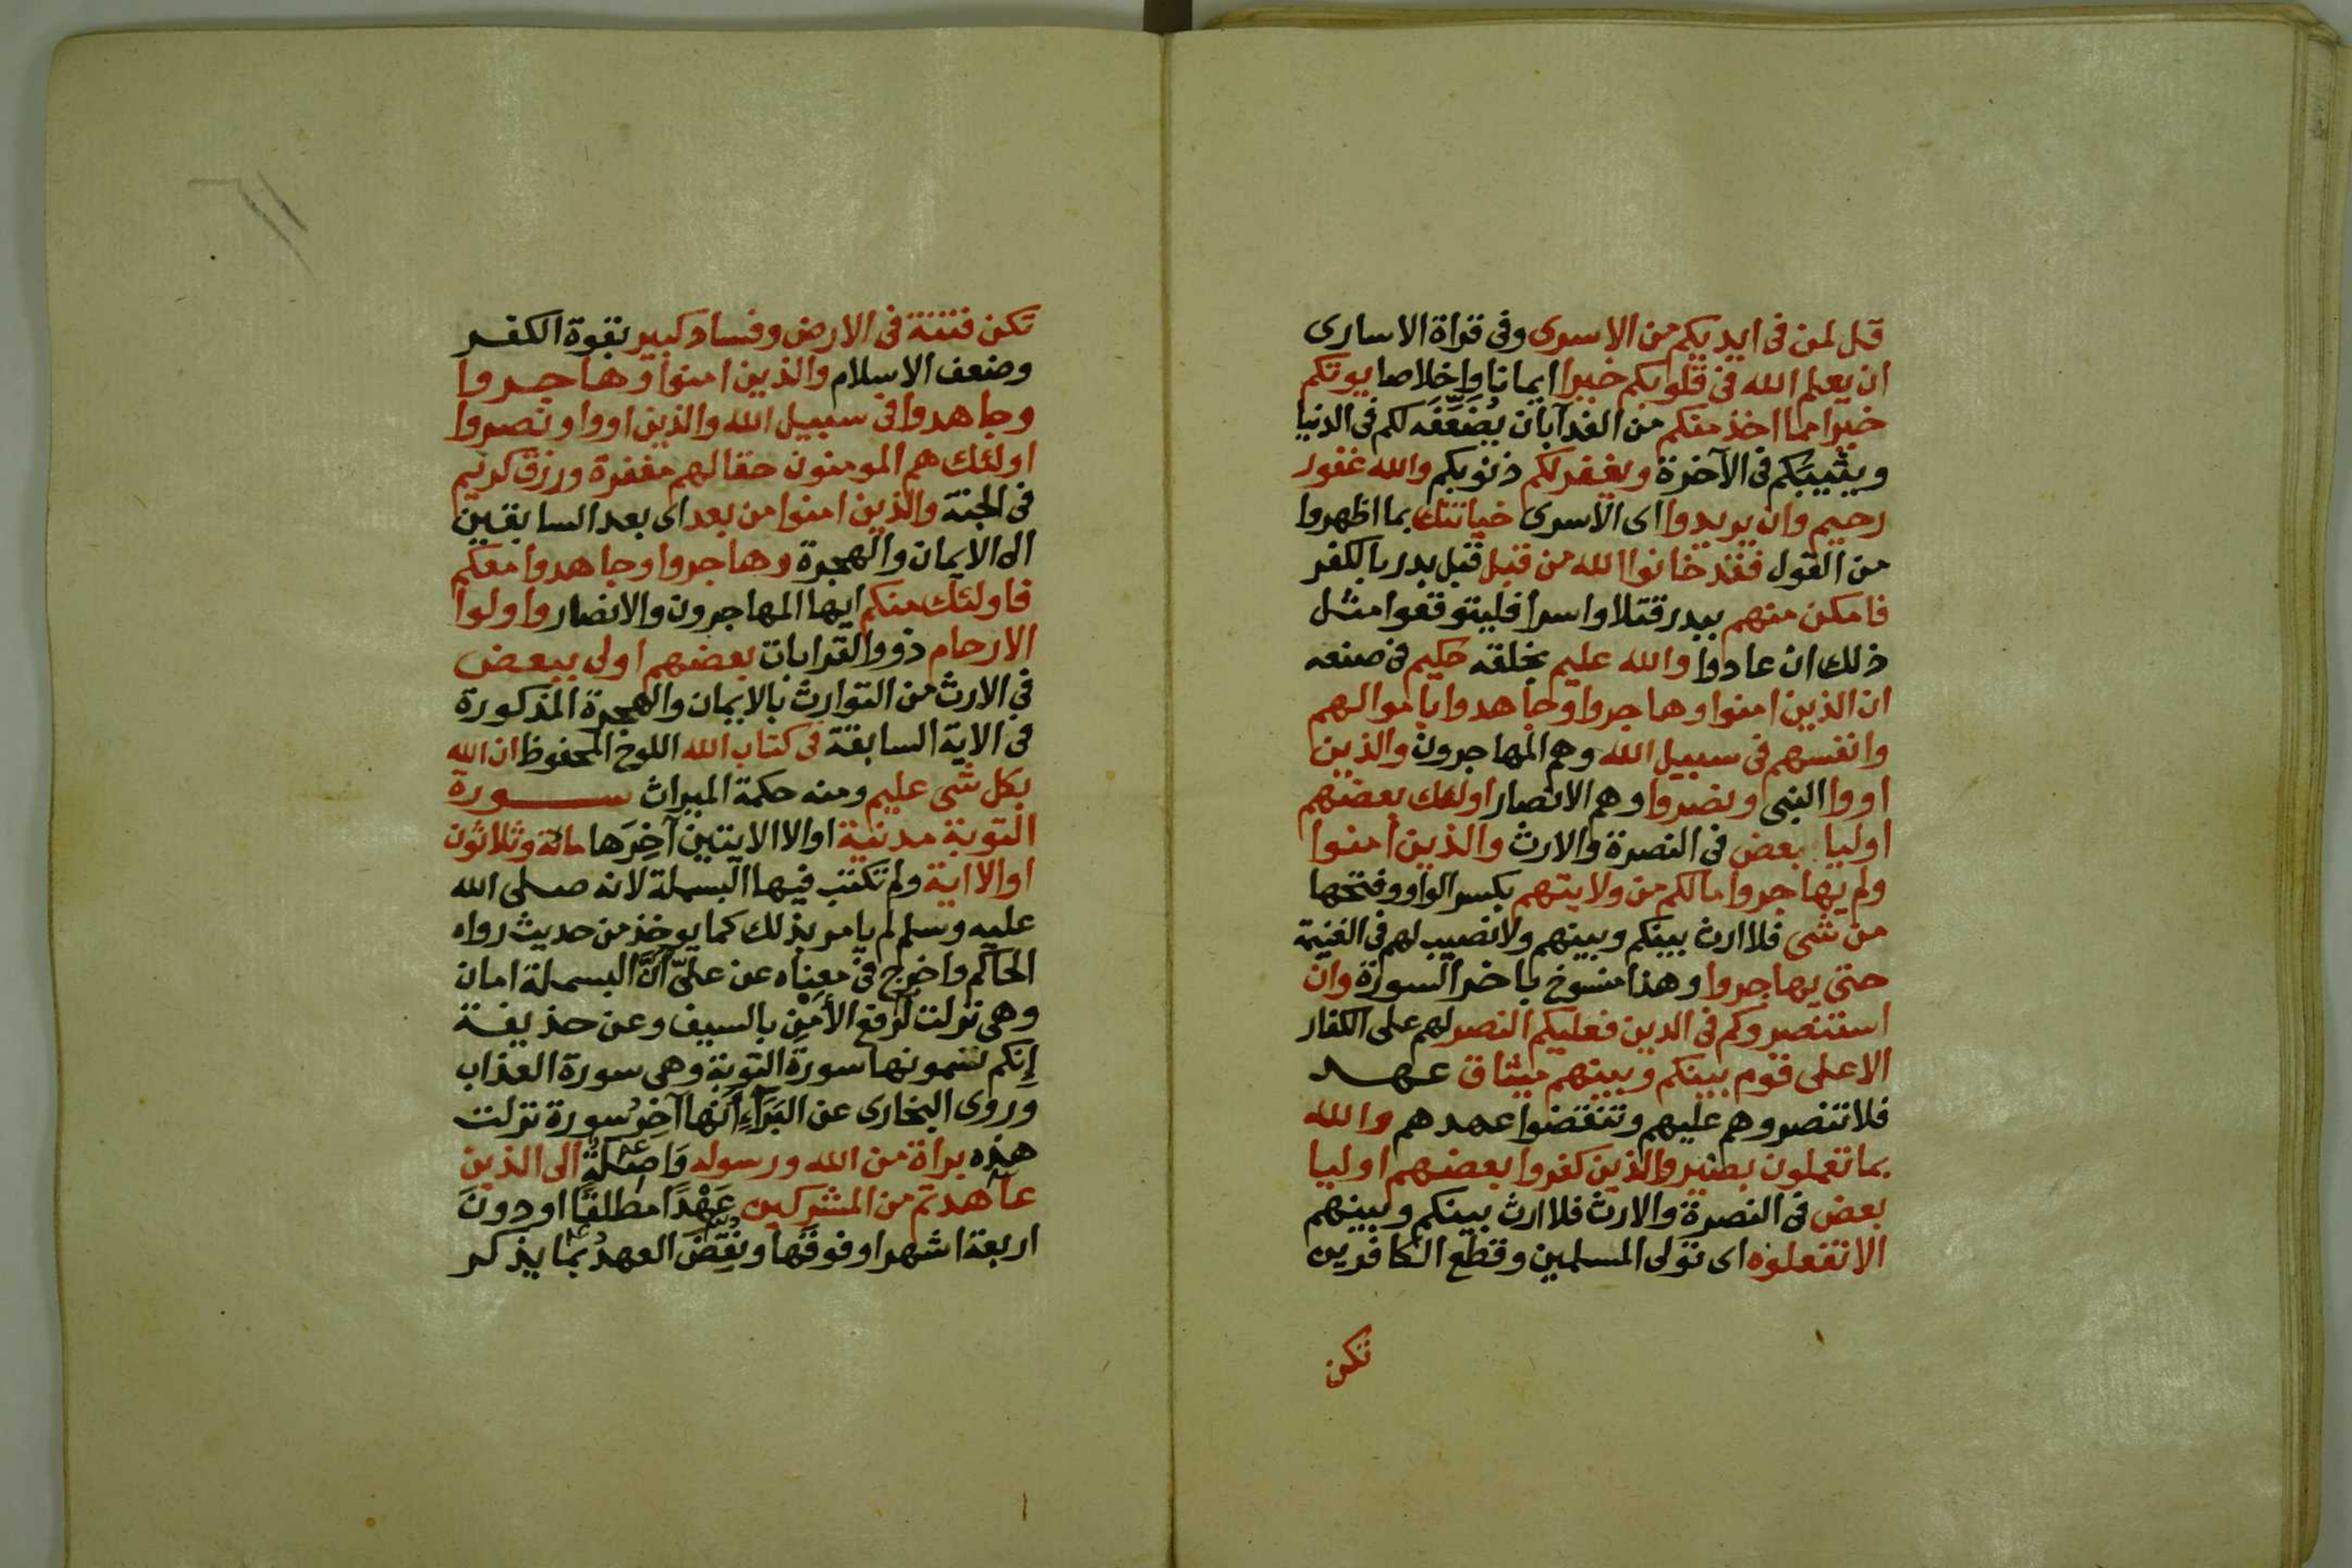 قل لمن فى ايديكم من الاسرى وفى قراة الاسارى
ان يعلم الله فى قلوبكم خيرا ايمانا واخلاصا يوتكم
خيرا مما اخذ منكم من الفدآ بان يُضَعِّفَه لكم فى الدنيا
ويثيبَكم فى الآخرة ويغفر لكم ذنوبكم والله غفور
رحيم وان يريدوا اى الاسرى خيانتك بما اظهروا
من القول فقد خانوا الله من قبل قبل بدر بالكفر
فامكن منهم ببدر قتلا واسرا فليتوقعوا مثل
ذلك ان عادوا والله عليم بخلقه حكيم فى صنعه
ان الذين امنوا وهاجروا وجاهدوا باموالهم
وانفسهم فى سبيل الله وهم المهاجرون والذين
اووا النبى ونصروا وهم الانصار اولئك بعضهم
اوليا بعض فى النصرة والارث والذين امنوا
ولم يهاجروا مالكم من ولايتهم بكسر الواو وفتحها
من شى فلا ارث بينكم وبينهم ولا نصيب لهم فى الغنيمة
حتى يهاجروا وهذا منسوخ باخر السورة وان
استنصروكم فى الدين فعليكم النصر لهم على الكفار
الا على قوم بينكم وبينهم ميثاق عهد
فلا تنصروهم عليهم وتنقضوا عهدهم والله
بما تعملون بصير والذين كفروا بعضهم اوليا
بعض فى النصرة والارث فلا ارث بينكم وبينهم
الا تفعلوه اى تولى المسلمين وقطع الكافرين
تكن
تكن فتنة فى الارض وفساد كبير بقوة الكفر
وضعف الاسلام والذين امنوا وهاجروا
وجاهدوا فى سبيل الله والذين اووا ونصروا
اولئك هم المومنون حقا لهم مغفرة ورزق كريم
فى الجنة والذين امنوا من بعد اى بعد السابقين
الى الايمان والهجرة وهاجروا وجاهدوا معكم
فاولئك منكم ايها المهاجرون والانصار واولوا
الارحام ذووا القرابات بعضهم اولى ببعض
فى الارث من التوارث بالايمان والهجرة المذكورة
فى الاية السابقة فى كتاب الله اللوح المحفوظ ان الله
بكل شى عليم ومنه حكمة الميراث سورة
التوبة مدنية اوالا الايتين آخِرَها مائة وثلاثون
اوالا اية ولم تكتب فيها البسملة لانه صلى الله
عليه وسلم لم يامر بذلك كما يوخذ من حديث رواه
الحاكم واخرج فى معناه عن علىّ انَّ البسملة امان
وهى نزلت لرفع الأمنِ بالسيف وعن حذيفة
إنكم تسمونها سورة التوبة وهى سورة العذاب
وروى البخارى عن البَرَآءِ أنها آخِرُ سورة نزلت
هذه براة من الله ورسوله وَاصِلةٌ الى الذين
عاهدتم من المشركين عَهْدًا مطلقًا او دونَ
اربعة اشهر او فوقَها ونُقِضَ العهدُ بما يذكر